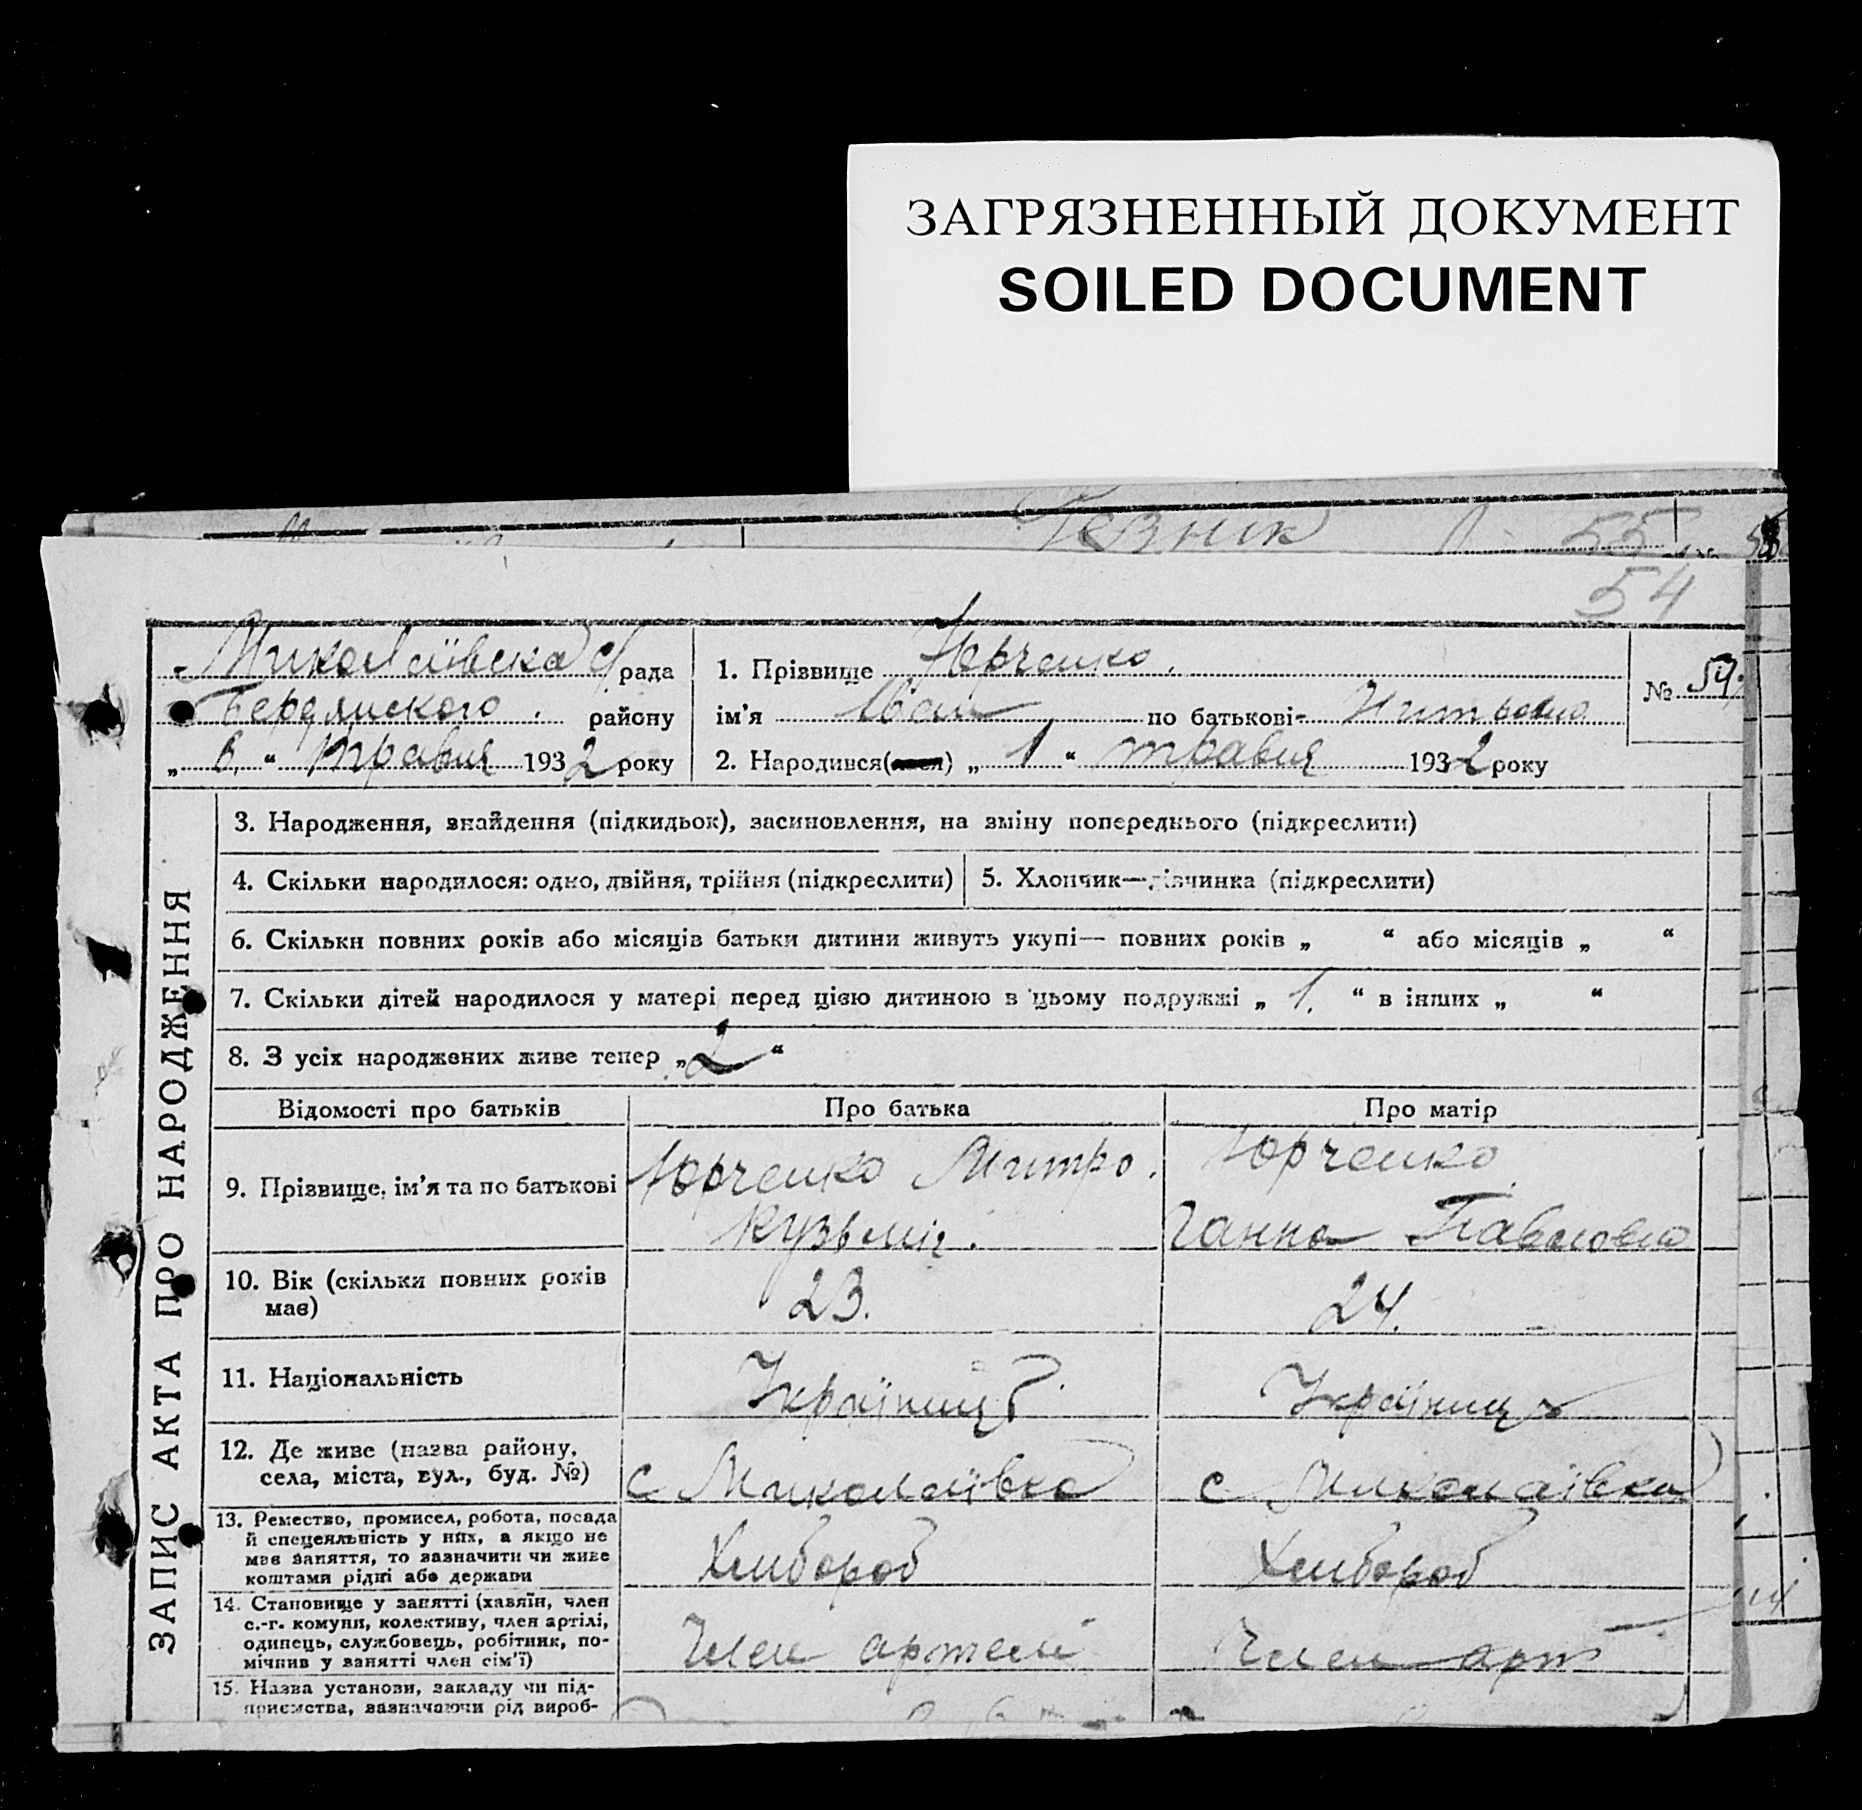 ЗАГРЯЗНЕННЫЙ ДОКУМЕНТ
SOILED DOCUMENT
55
54
Миколаївська с/рада
Бердянського району
„ 6. “ травня 1932 року
1. Прізвище Юрченко.
ім'я Іван по батькові-
2. Народився(лася) „ 1 “ травня 1932 року
№ 54.
ЗАПИС АКТА ПРО НАРОДЖЕННЯ
3. Народження, знайдення (підкидьок), засиновлення, на зміну попереднього (підкреслити)
4. Скільки народилося: одно, двійня, трійня (підкреслити)
5. Хлопчик—дівчинка (підкреслити)
6. Скільки повних років або місяців батьки дитини живуть укупі— повних років „ “ або місяців „ “
7. Скільки дітей народилося у матері перед цією дитиною в цьому подружжі „ 1. “ в інших „ “
8. З усіх народжених живе тепер „ 2 “
Відомості про батьків
Про батька
Про матір
9. Прізвище, ім'я та по батькові
Юрченко Митро.
Кузьмич.
Юрченко
Ганна Павловна
10. Вік (скільки повних років
має)
23.
24.
11. Національність
Українець
Українка
12. Де живе (назва району,
села, міста, вул., буд. №)
с Миколаївка
с Миколаївка
13. Ремество, промисел, робота, посада
й спецеяльність у них, а якщо не
має заняття, то зазначити чи живе
коштами рідні або держави
Хлібороб
Хлібороб
14. Становище у занятті (хавяїн, член
с.-г. комуни, колективу, член артілі,
одинець, службовець, робітник, по-
мічнив у занятті член сім'ї)
Член артелі
Член арт
15. Назва установи, закладу чи під-
приємства, вазначаючи рід вироб-